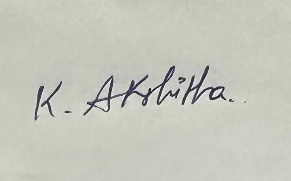 K. Akshitha.